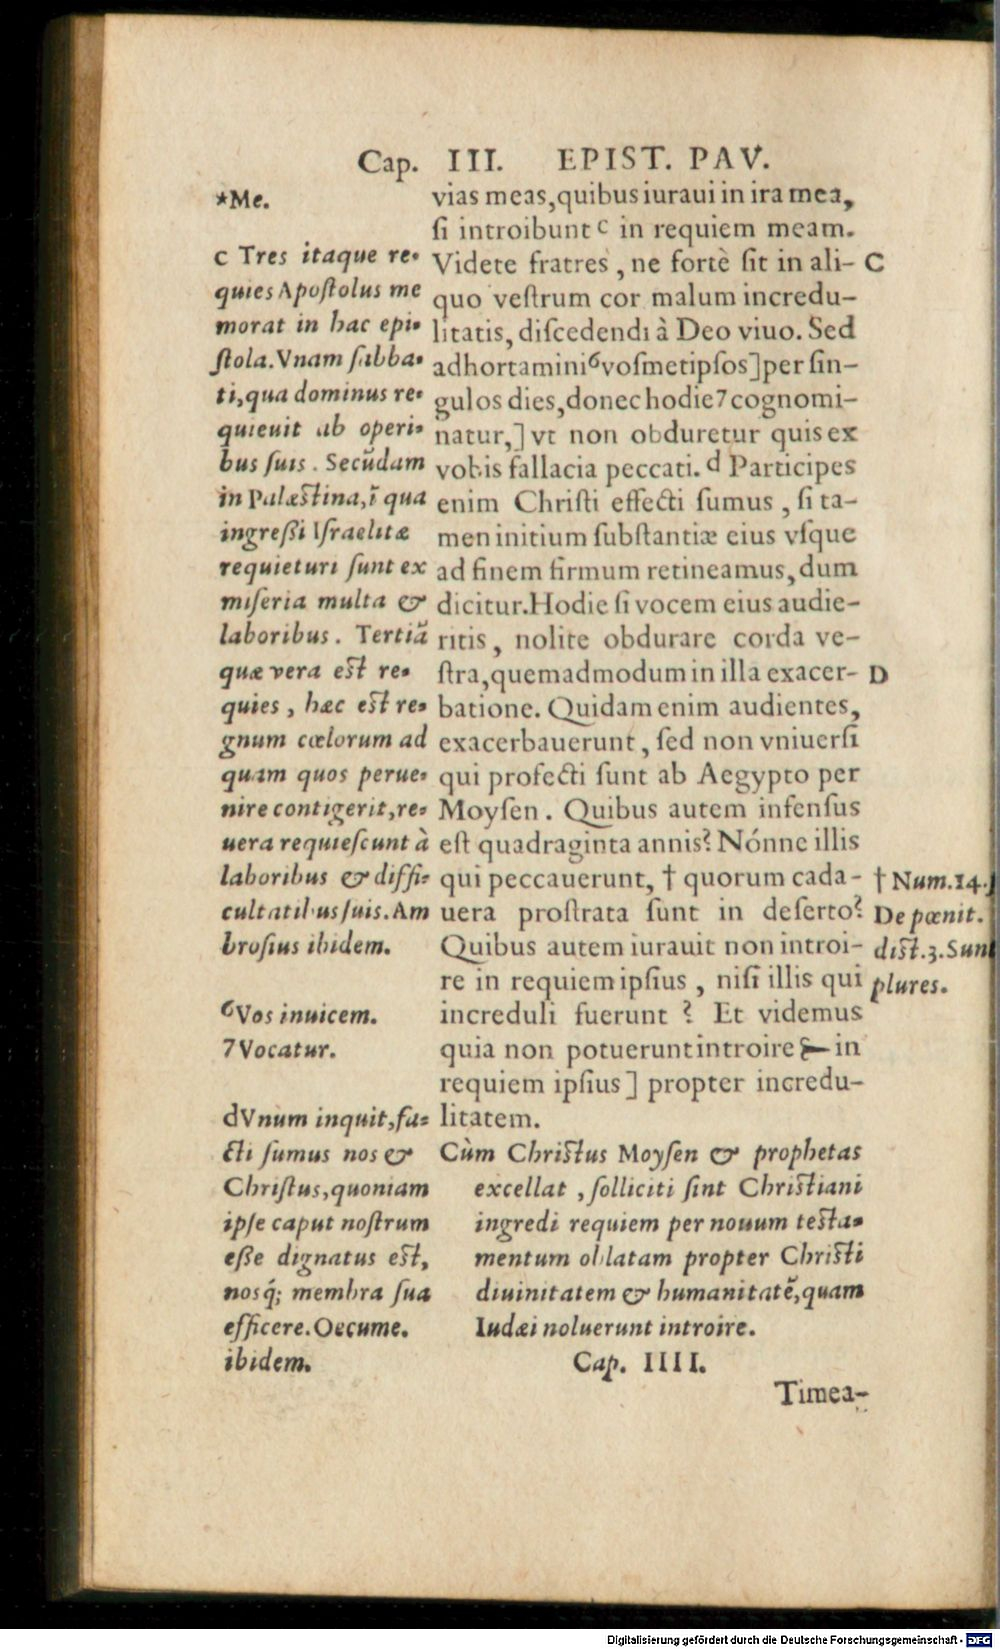 Cap. III. EPIST. PAV.
*Me.
c Tres itaque re-
quies Apoſtolus me
morat in hac epi-
ſtola. Vnam ſabba-
ti, qua dominus re-
quieuit ab operi-
bus ſuis. Secũdam
in Palæſtina, ĩ qua
ingreßi Iſraelitæ
requieturi ſunt ex
miſeria multa &
laboribus. Tertiã
quæ vera eſt re-
quies, hæc eſt re-
gnum cœlorum ad
quam quos perue-
nire contigerit, re-
uera requieſcunt à
laboribus & diffi-
cultatibus ſuis. Am
broſius ibidem.
6 Vos inuicem.
7 Vocatur.
d Vnum inquit, fa-
cti ſumus nos &
Chriſtus, quoniam
ipſe caput noſtrum
eße dignatus eſt,
nosq́; membra ſua
efficere. Oecume.
ibidem.
vias meas, quibus iuraui in ira mea,
ſi introibunt c in requiem meam.
Videte fratres, ne fortè ſit in ali- C
quo veſtrum cor malum incredu-
litatis, diſcedendi à Deo viuo. Sed
adhortamini 6 voſmetipſos] per ſin-
gulos dies, donec hodie 7 cognomi-
natur,] vt non obduretur quis ex
vobis fallacia peccati. d Participes
enim Chriſti effecti ſumus, ſi ta-
men initium ſubſtantiæ eius vſque
ad finem firmum retineamus, dum
dicitur. Hodie ſi vocem eius audie-
ritis, nolite obdurare corda ve-
ſtra, quemadmodum in illa exacer- D
batione. Quidam enim audientes,
exacerbauerunt, ſed non vniuerſi
qui profecti ſunt ab Aegypto per
Moyſen. Quibus autem infenſus
eſt quadraginta annis? Nónne illis
qui peccauerunt, † quorum cada-
uera proſtrata ſunt in deſerto?
Quibus autem iurauit non introi-
re in requiem ipſius, niſi illis qui
increduli fuerunt? Et videmus
quia non potuerunt introire in
requiem ipſius] propter incredu-
litatem.
† Num. 14.
De pœnit.
diſt. 3. Sunt
plures.
Cùm Chriſtus Moyſen & prophetas
excellat, ſolliciti ſint Chriſtiani
ingredi requiem per nouum teſta-
mentum oblatam propter Chriſti
diuinitatem & humanitatẽ, quam
Iudæi noluerunt introire.
Cap. IIII.
Timea-
Digitalisierung gefördert durch die Deutsche Forschungsgemeinschaft - DFG